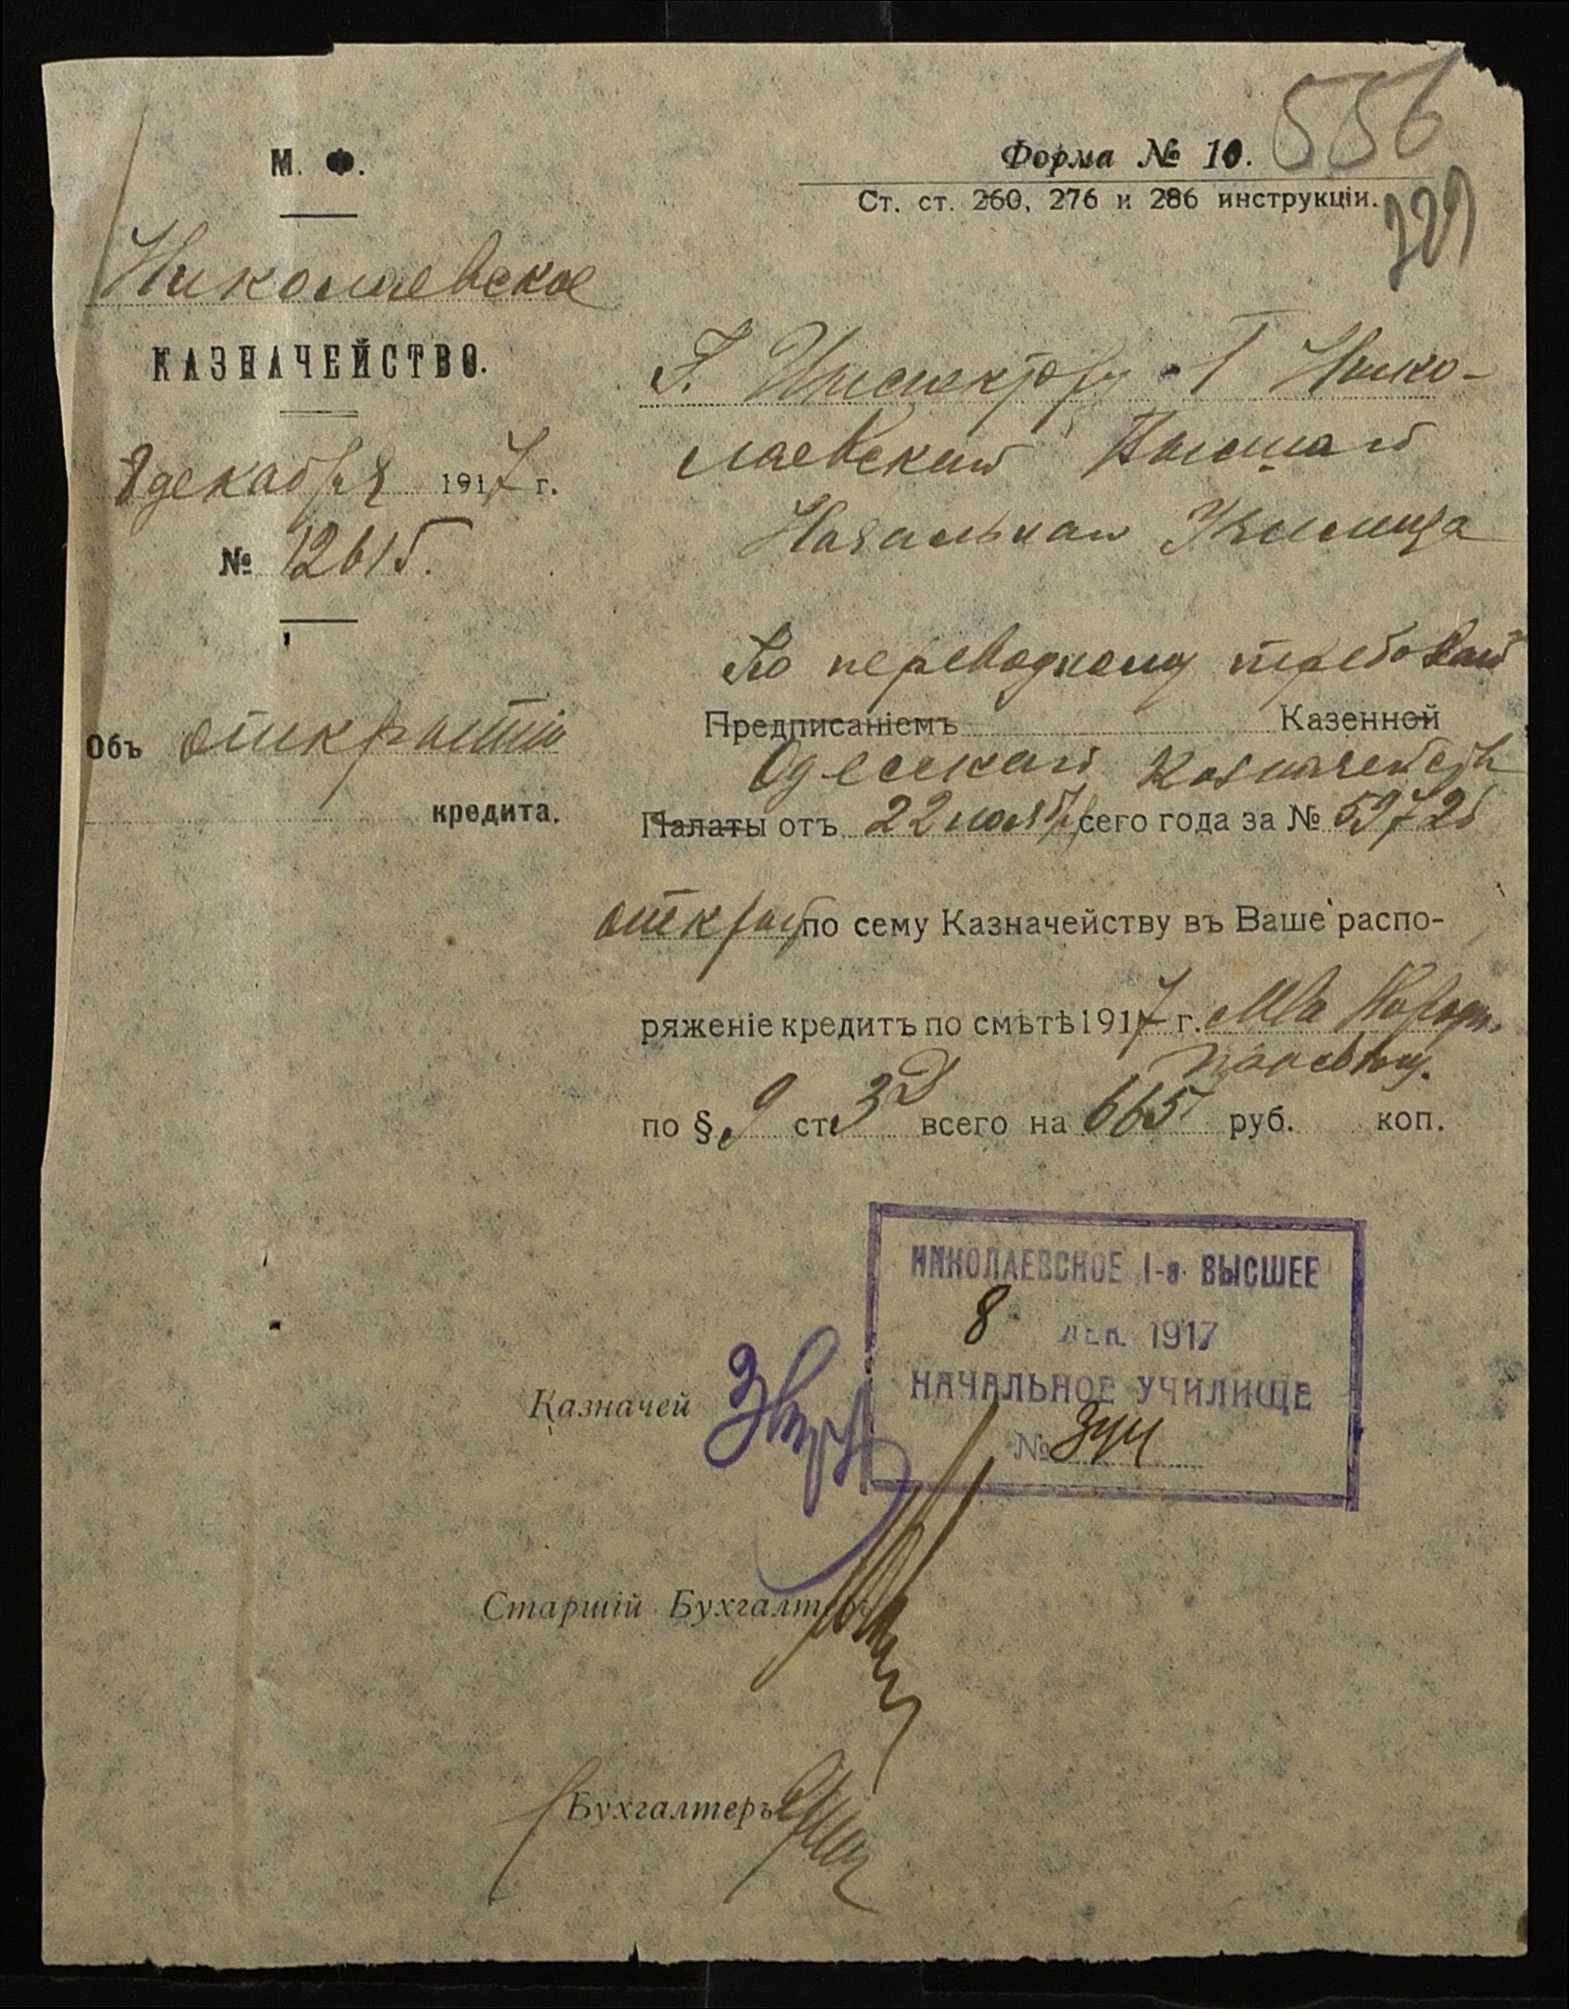 556
М. Ф.
Форма № 10.
Ст. ст. 260, 276 и 286 инструкціи.
329
Николаевское
КАЗНАЧЕЙСТВО.
8 декабря 1917 г.
№ 12615.
Г. Инспектору I Нико-
лаевскаго Высшаго
Начальнаго Училища
Объ открытіи
кредита.
По переводному требован
Предписаніемъ Казенной
Одесскаго Казначейств
Палаты отъ 22 нояб сего года за №
открыт по сему Казначейству въ Ваше распо-
ряженіе кредитъ по смѣтѣ 1917 г. М-ва Народн.
просвѣщ.
по § 9 ст. 3 всего на 665 руб. коп.
НИКОЛАЕВСКОЕ 1-е ВЫСШЕЕ
8 ДЕК. 1917
НАЧАЛЬНОЕ УЧИЛИЩЕ
№ 344
Казначей
Старшій Бухгалтеръ
Бухгалтеръ